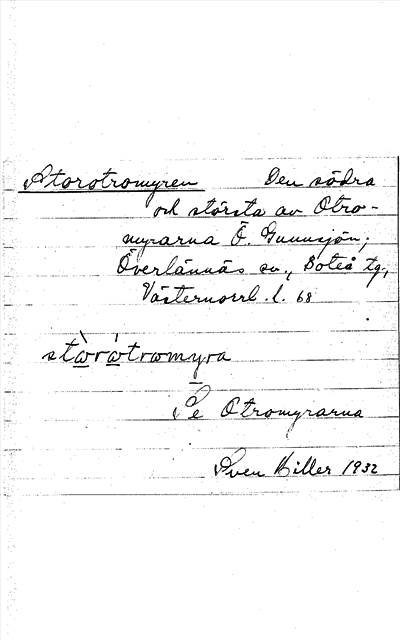 Storotromyren Den södra
och största av Otro-
myrarna Ö. Gunnsjön;
Överlännäs sn., Boteå tg,
Västernorrl. l. 68
stòrótromyra
Se Otromyrarna
Sven Hiller 1932